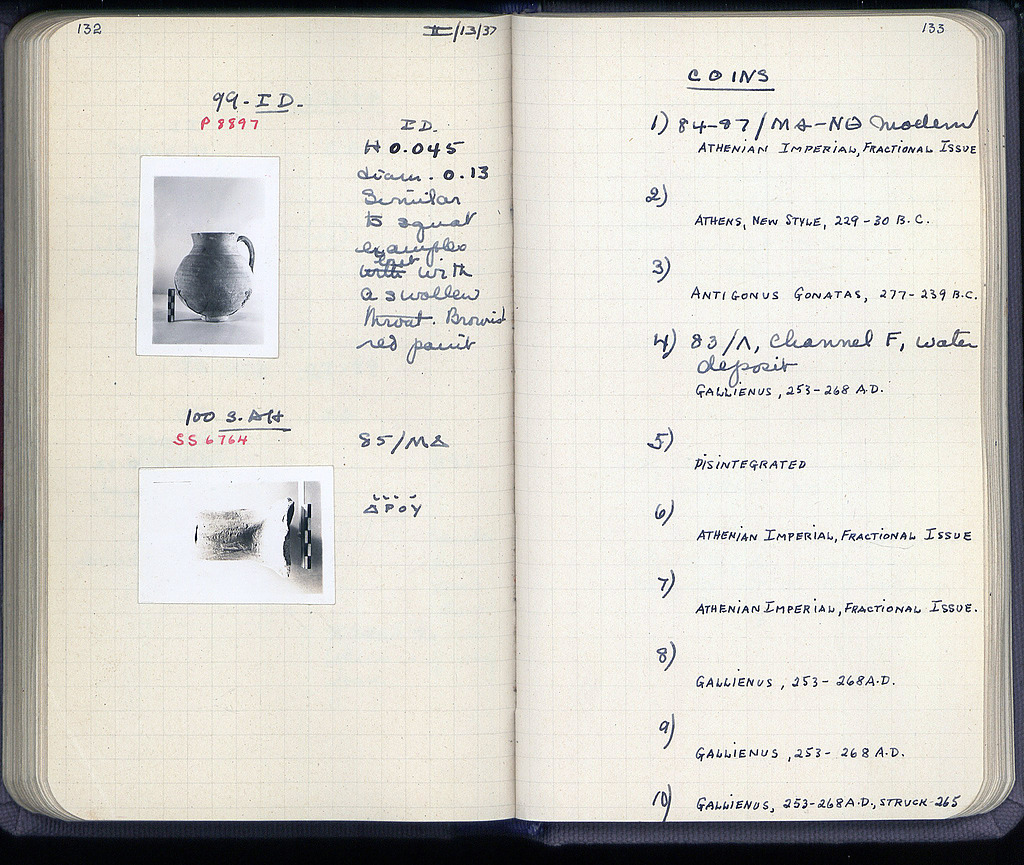 132
II/13/37
99-ID.
P 8897
ID.
H 0.045
diam. 0.13
Similar
to squat
examples
but
with with
a swollen
throat. Brownish
red paint
100 S. AH
SS 6764
85/ΜΔ
ΔΡΟΥ
133
COINS
1) 84-87/ΜΔ-ΝΘ modern
ATHENIAN IMPERIAL, FRACTIONAL ISSUE
2)
ATHENS, NEW STYLE, 229-30 B.C.
3)
ANTIGONUS GONATAS, 277-239 B.C.
4) 83/Λ, channel F, water
deposit
GALLIENUS, 253-268 A.D.
5)
DISINTEGRATED
6)
ATHENIAN IMPERIAL, FRACTIONAL ISSUE
7)
ATHENIAN IMPERIAL, FRACTIONAL ISSUE.
8)
GALLIENUS, 253-268 A.D.
9)
GALLIENUS, 253-268 A.D.
10) GALLIENUS, 253-268 A.D., STRUCK 265